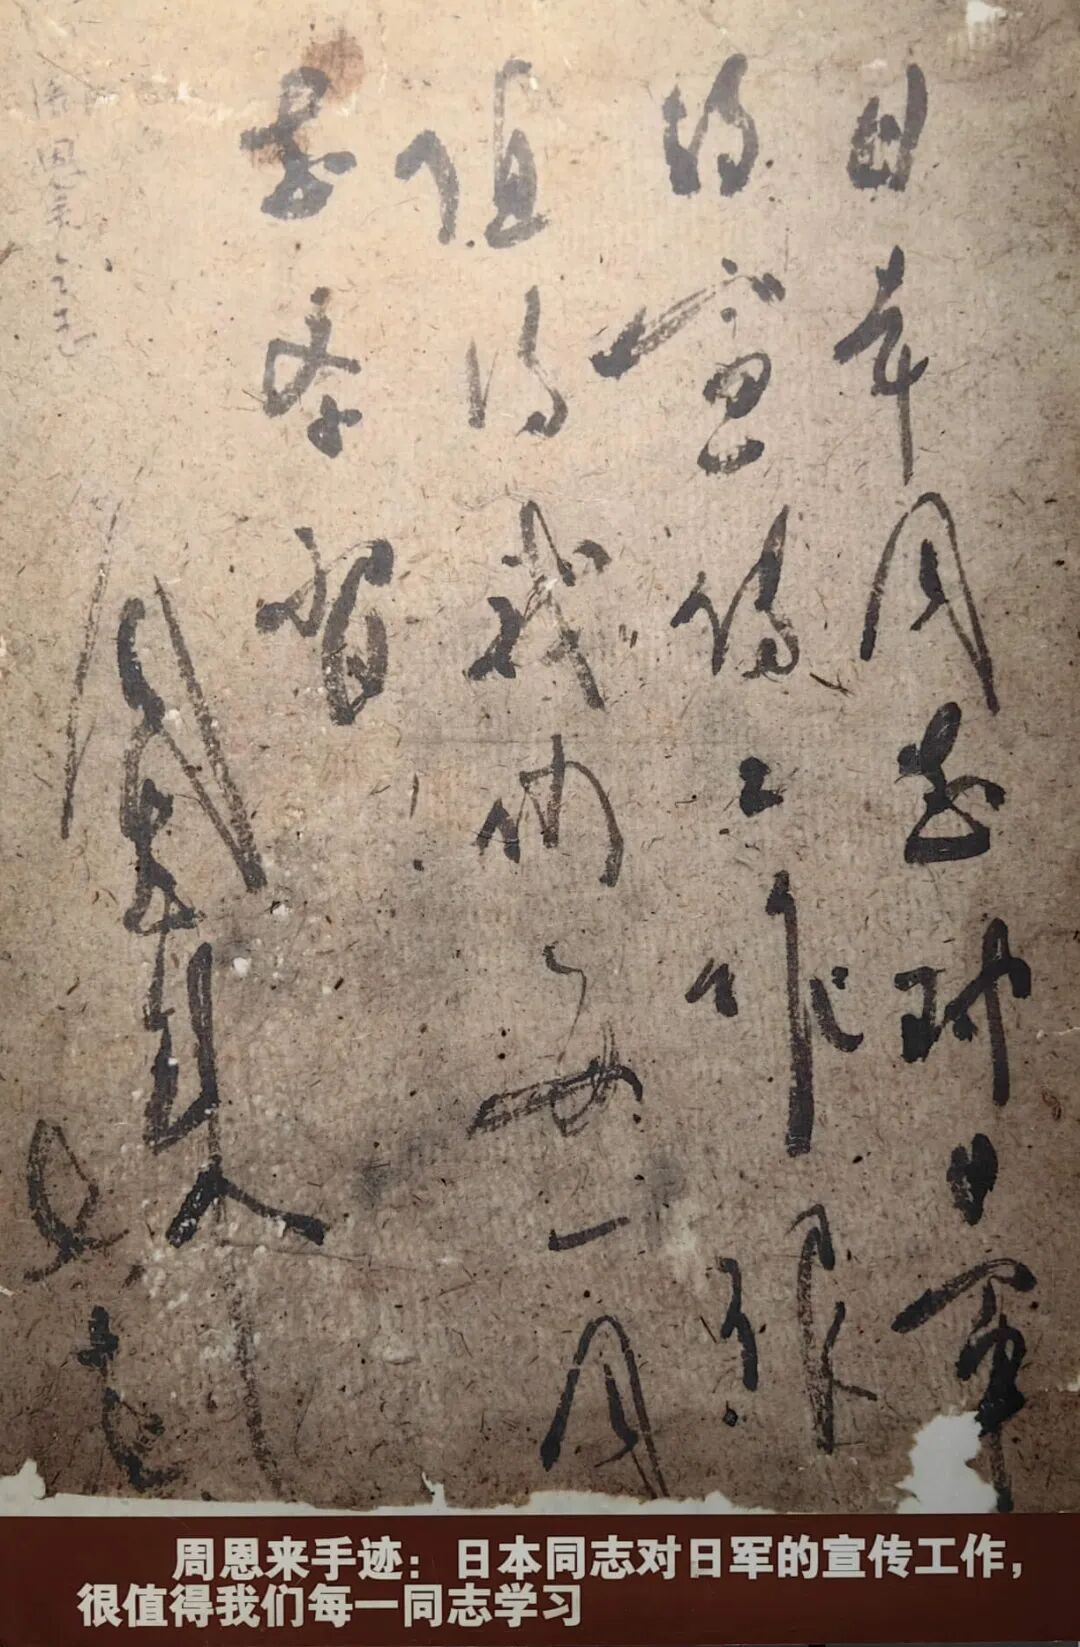 日本同志对日军
的宣传工作很
值得我们每一同
志学习
周恩来
周恩来同志
周恩来手迹：日本同志对日军的宣传工作，
很值得我们每一同志学习